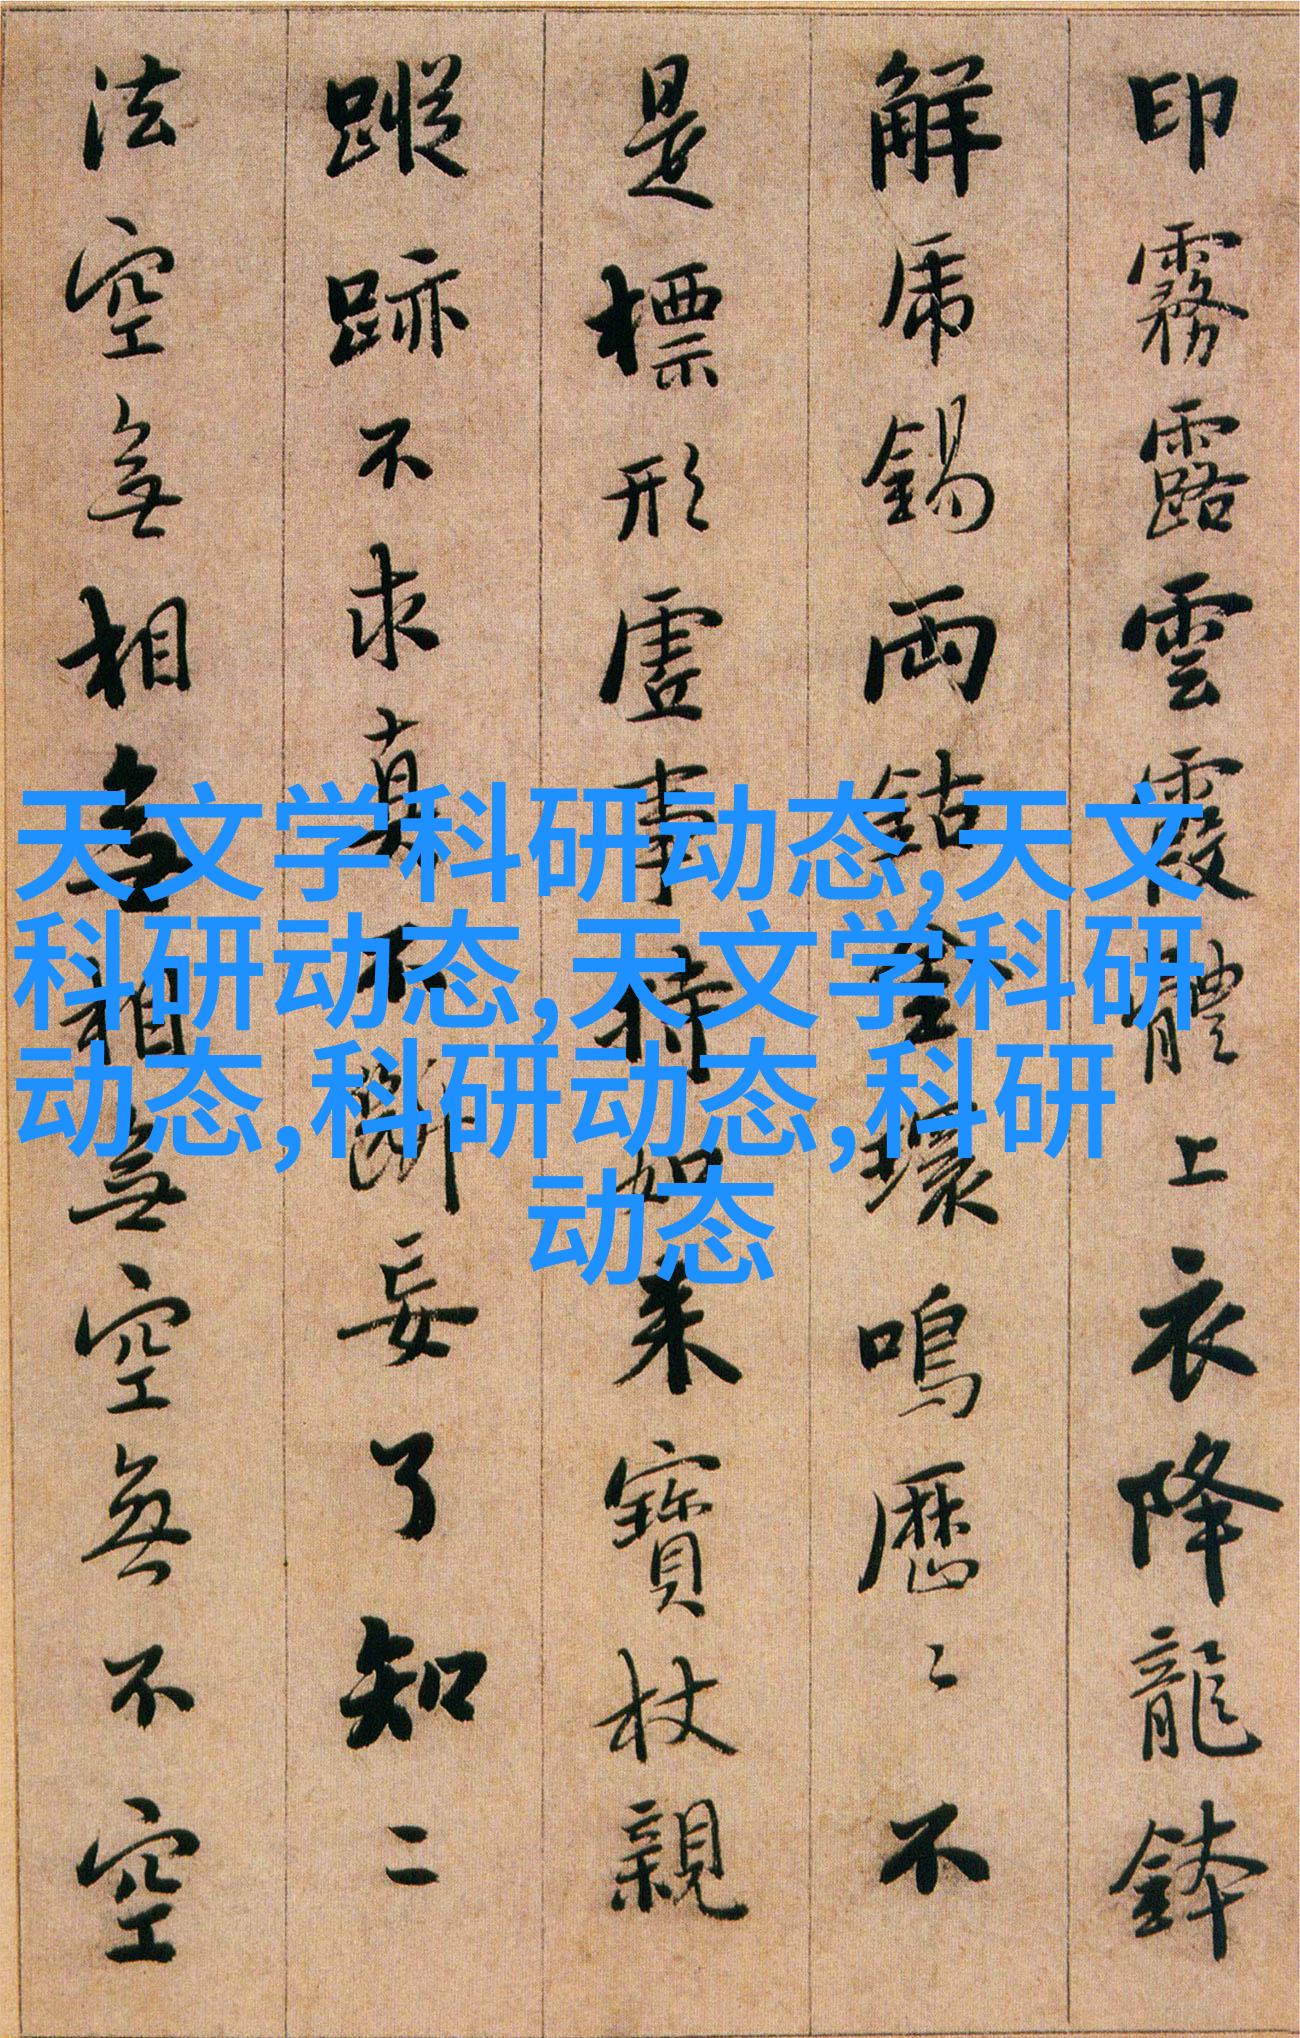 印霧露雲霞體上衣降龍鉢
解虎錫兩鈷金環鳴歷〻不
是標形虛事持如來寶杖親
蹤跡不求真不斷妄了知二
法空無相無相無空無不空
天文学科研动态,天文
科研动态,天文学科研
动态,科研动态,科研
动态